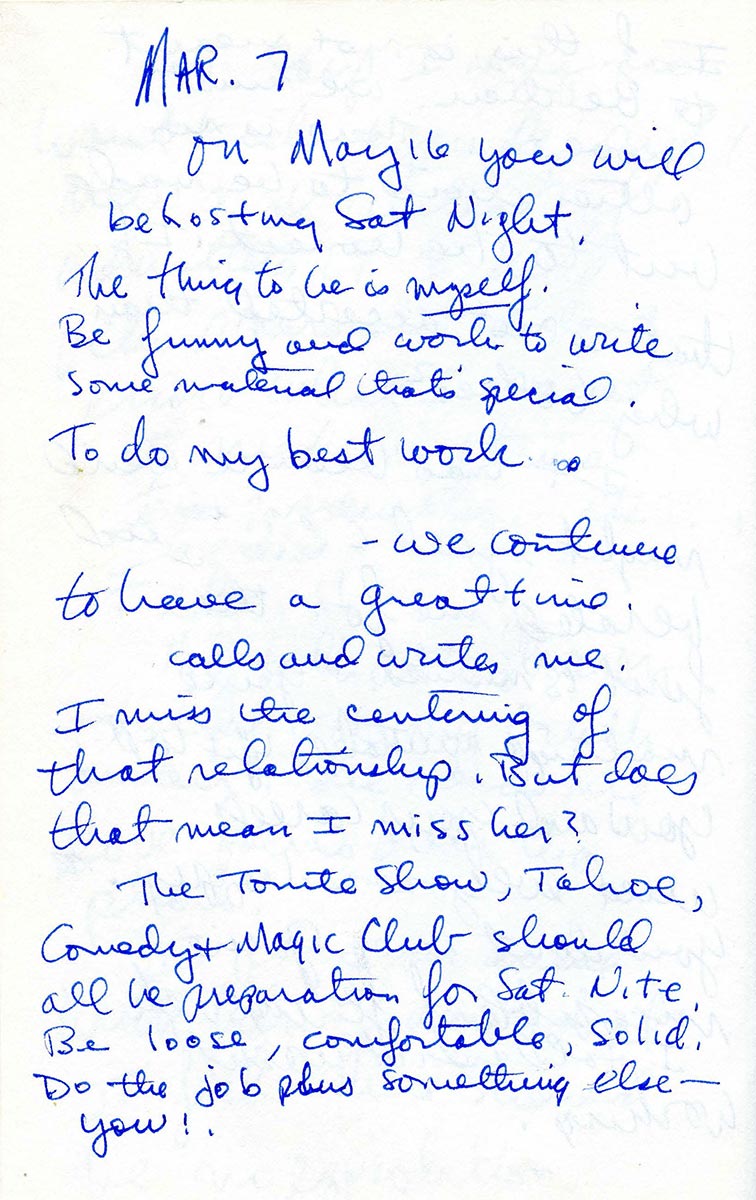 MAR. 7
On May 16 you will
be hosting Sat Night.
The thing to be is myself.
Be funny and work to write
some material that's special.
To do my best work...
- we continue
to have a great time.
calls and writes me.
I miss the centering of
that relationship. But does
that mean I miss her?
The Tonite Show, Tahoe,
Comedy + Magic Club should
all be preparation for Sat. Nite.
Be loose, comfortable, solid.
Do the job plus something else—
you!.